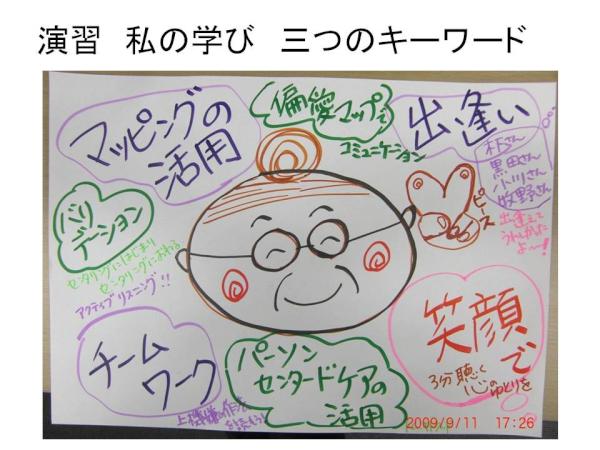 演習　私の学び　三つのキーワード
マッピングの
活用
偏愛マップで
コミュニケーション
出逢い
黒田さん
小川さん
牧野さん
出逢えて
うれしかった
よ〜!
ピース
バリ
デーション
センタリングにはじまり
センタリングにおわる
アクティブリスニング!!
チーム
ワーク
パーソン
センタードケアの
活用
笑顔で
3分聴く
心のゆとりを
2009/9/11 17:26